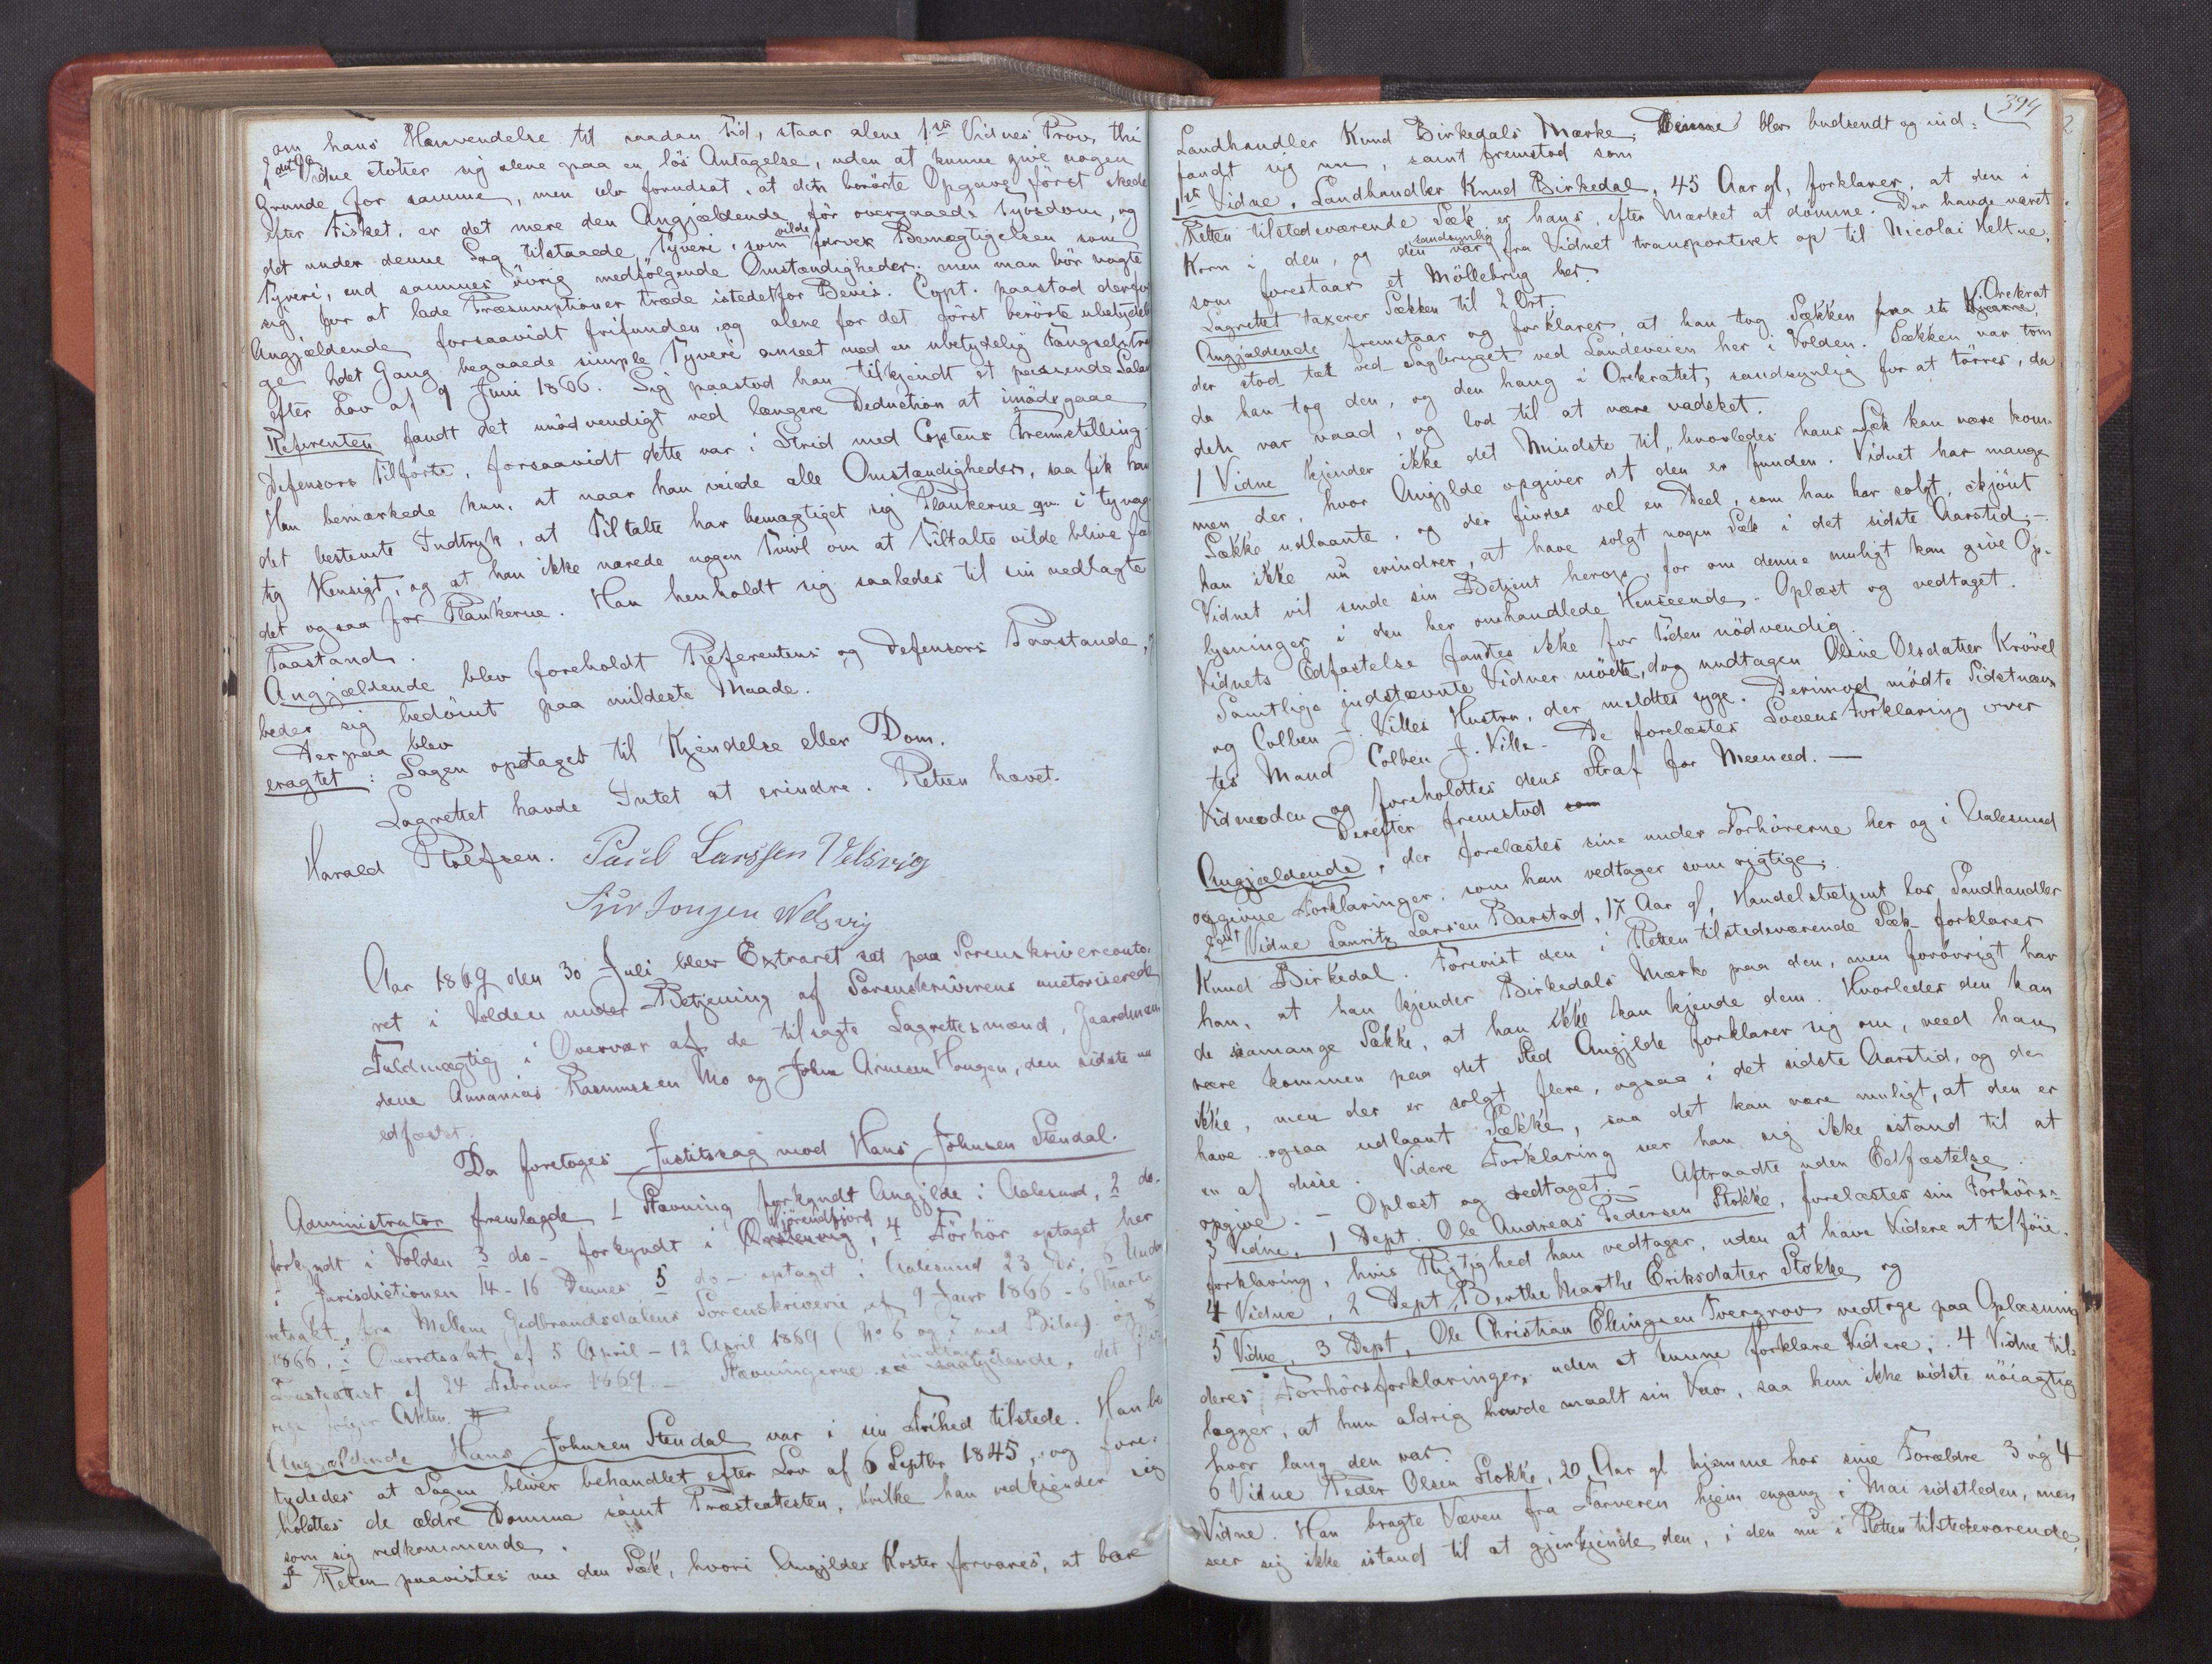 om hans Henvendelse til saadan Tid, staar alene 1ste Vidnes Prov, thi
2det Vidne støtter sig alene paa en løs Antagelse, uden at kunne give nogen
Grunde for samme, men selv forudsat, at den berørte Opgave først skede
efter Fisket, er det mere den Angjældende før overgaaede Tyvsdom, og
det under denne Sag tilstaaede Tyveri, som vilde farver Bemægtigelsen som
Tyveri, end sammes øvrig medfølgende Omstændigheder; men man bør vogte
sig for at lade Præsumptioner træde istedetfor Bevis. Cpt. paastod derfor
Angjældende forsaavidt frifunden, og alene for det først berørte ubetydeli
ge 2det Gang begaaede simple Tyveri anseet med en ubetydelig Fængselsstraf
efter Lov af 9 Juni 1866. Sig paastod han tilkjendt et passende Salair
Referenten fandt det unødvendigt ved længere Deduction at imødegaae
Defensors Tilførte, forsaavidt dette var i Strid med Cptens Fremstilling.
Han bemærkede kun, at naar han veiede alle Omstændigheder, saa fik han
det bestemte Indtryk, at Tiltalte har bemægtiget sig Plankerne qu. i tyvag
tig Hensigt, og at han ikke nærede nogen Tvivl om at Tiltalte vilde blive fæ
det ogsaa for Plankerne. Han henholdt sig saaledes til sin nedlagte
Paastand.
Angjældende blev foreholdt Referentens og Defensors Paastande,
beder sig bedømt paa mildeste Maade.
Derpaa blev
eragtet: Sagen optages til Kjendelse eller Dom.
Lagrettet havde Intet at erindre. Retten hævet.
Harald Rolfsen. Paul Larssen Velsvig
Siur Jonsen Welsvig
Aar 1869 den 30 Juli blev Extraret sat paa Sorenskrivercontoi
ret i Volden under Betjening af Sorenskriverens auctoriserede
Fuldmægtig i Overvær af de tilsagte Lagrettesmænd, Gaardmæn
dene Annanias Rasmussen Mo og John Arnesen Haugen, den sidste nu
edfæstet.
Da foretoges Justitssag mod Hans Johnsen Stendal.
Administrator fremlagde 1 Stævning forkyndt Angjlde i Aalesund, 2 do.
forkyndt i Volden 3 do - forkyndt i Hjørendfjord, 4 Forhør optaget her
i Jurisdictionen 14-16 Dennes 5 do - optaget i Aalesund 23 Ds, 6 Under
retsakt fra Mellem Gudbrandsdalens Sorenskriveri af 9 Janr 1866 - 6 Marts
1866, i Overretsakt af 5 April - 12 April 1869 (No 6 og 7 med Bilag) og 8
Præsteattest af 24 Februar 1869. - Stævningerne ere indtagne saalydende, det
Akten.
Angjældende Hans Johnsen Stendal var i sin Frihed tilstede. Han be
tydedes at Sagen bliver behandlet efter Lov af 6 Septbr 1845, og fore-
holdtes de ældre Domme samt Præsteattesten, hvilke han vedkjender sig
som sig vedkommende.
I Retten paavistes nu den Sæk, hvori Angjldes Koster forvares, at bære
394
Landhandler Knud Birkedals Mærke. Denne blev budsendt og ind-
fandt sig nu, samt fremstod som
1ste Vidne, Landhandler Knud Birkedal, 45 Aar gl, forklarer, at den i
Retten tilstedeværende Sæk er hans, efter Mærket at dømme. Der havde været
Korn i den, og den var sandsynlig fra Vidnet transporteret op til Nicolai Heltne,
som forestaar et Møllebrug her.
Lagrettet taxerer Sækken til 2 Ort.
Angjældende fremstaar og forklarer, at han tog Sækken fra et Orekrat
der stod tæt ved Sagbruget ved Landeveien her i Volden. Sækken var tom
da han tog den, og den hang i Orekrattet, sandsynlig for at tørres, da
den var vaad, og lod til at være vadsket.
1 Vidne kjender ikke det Mindste til, hvorledes hans Sæk kan være kom-
men der, hvor Angjlde opgiver at den er funden. Vidnet har mange
Sække udlaante, og der findes vel en Deel, som han har solgt, skjønt
han ikke nu erindrer, at have solgt nogen Sæk i det sidste Aarstid. -
Vidnet vil sende sin Betjent herop, for om denne muligt kan give Op-
lysninger i den her omhandlede Henseende. - Oplæst og vedtaget.
Vidnets Edfæstelse fandtes ikke for Tiden nødvendig.
Samtlige indstævnte Vidner mødte, dog undtagen Oline Olsdatter Krøvel
og Colben J. Villes Hustru, der meldtes syge. Derimod mødte Sidstnævn
tes Mand Colben J. Ville. - De forelæstes Lovens Forklaring over
Vidneeden og foreholdtes dens Straf for Meeneed. -
Derefter fremstod som
Angjældende, der forelæstes sine under Forhørerne her og i Aalesund
opgivne Forklaringer, som han vedtager som rigtige.
2det Vidne Lauritz Larsen Barstad, 17 Aar gl, Handelsbetjent hos Landhandler
Knud Birkedal. Forevist den i Retten tilstedeværende Sæk forklarer
han, at han kjender Birkedals Mærke paa den, men forøvrigt har
de saamange Sække, at han ikke kan kjende dem. Hvorledes den kan
være kommen paa det Sted Angjlde forklarer sig om, veed han
ikke, men der er solgt flere, ogsaa i det sidste Aarstid, og de
have ogsaa udlaant Sække, saa det kan være muligt, at den er
en af disse. Videre Forklaring seer han sig ikke istand til at
opgive. - Oplæst og vedtaget. - Aftraadte uden Edfæstelse.
3 Vidne, 1 Dept. Ole Andreas Pedersen Stokke, forelæstes sin Forhørs-
forklaring, hvis Rigtighed han vedtager, uden at have Videre at tilføie.
4 Vidne, 2 Dept, Berthe Marthe Eriksdatter Stokke og
5 Vidne, 3 Dept, Ole Christian Ellingsen Tvergrov vedtoge paa Oplæsning
deres Forhørsforklaringer, uden at kunne forklare Videre; 4 Vidne til-
lægger, at hun aldrig havde maalt sin Væv, saa hun ikke vidste nøiagtig
hvor lang den var.
6 Vidne Peder Olsen Stokke, 20 Aar gl hjemme hos sine Forældre 3 og 4
Vidne. Han bragte Væven fra Farveren hjem engang i Mai sidstleden, men
seer sig ikke istand til at gjenkjende den, i den nu i Retten tilstedeværende